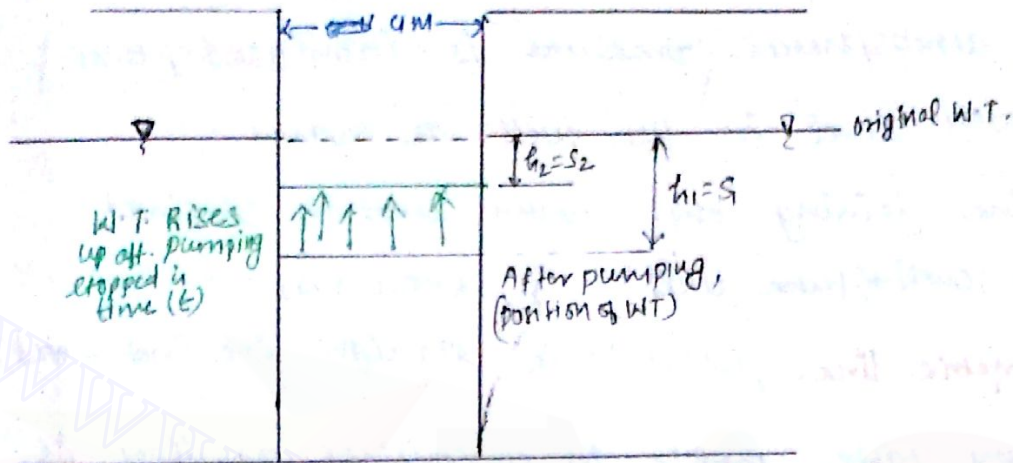 4M
original W.T.
h₂=S₂
h₁=S₁
W.T. Rises
up aft. pumping
stopped in
time (t)
After pumping,
(position of WT)